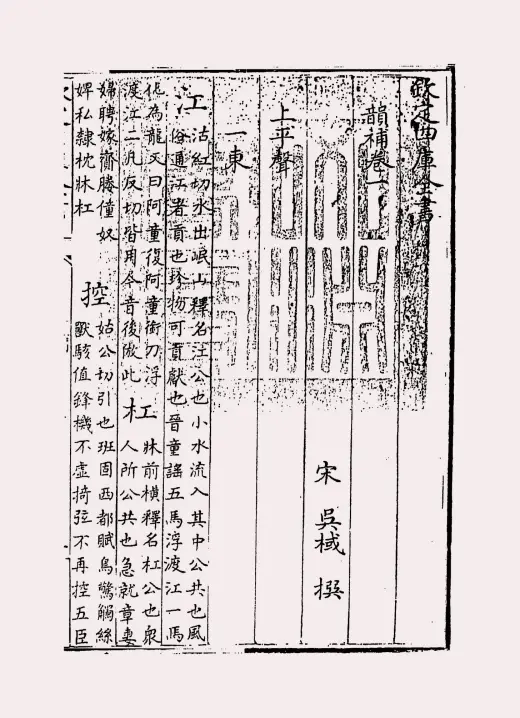 欽定四庫全書
韻補卷一
宋 吳棫 撰
上平聲
一東
江
沽紅切水出岷山釋名江公也小水流入其中公共也風
俗通江者貢也珍物可貢獻也晉童謠五馬浮渡江一馬
化為龍又曰阿童復阿童銜刀浮
渡江二凡反切皆用今音後倣此
杠
牀前横釋名杠公也衆
人所公共也急就章妻
婦聘嫁齎媵僮奴
婢私隸枕牀杠
控
姑公切引也班固西都賦鳥驚觸絲
獸駭值鋒機不虛掎弦不再控五臣